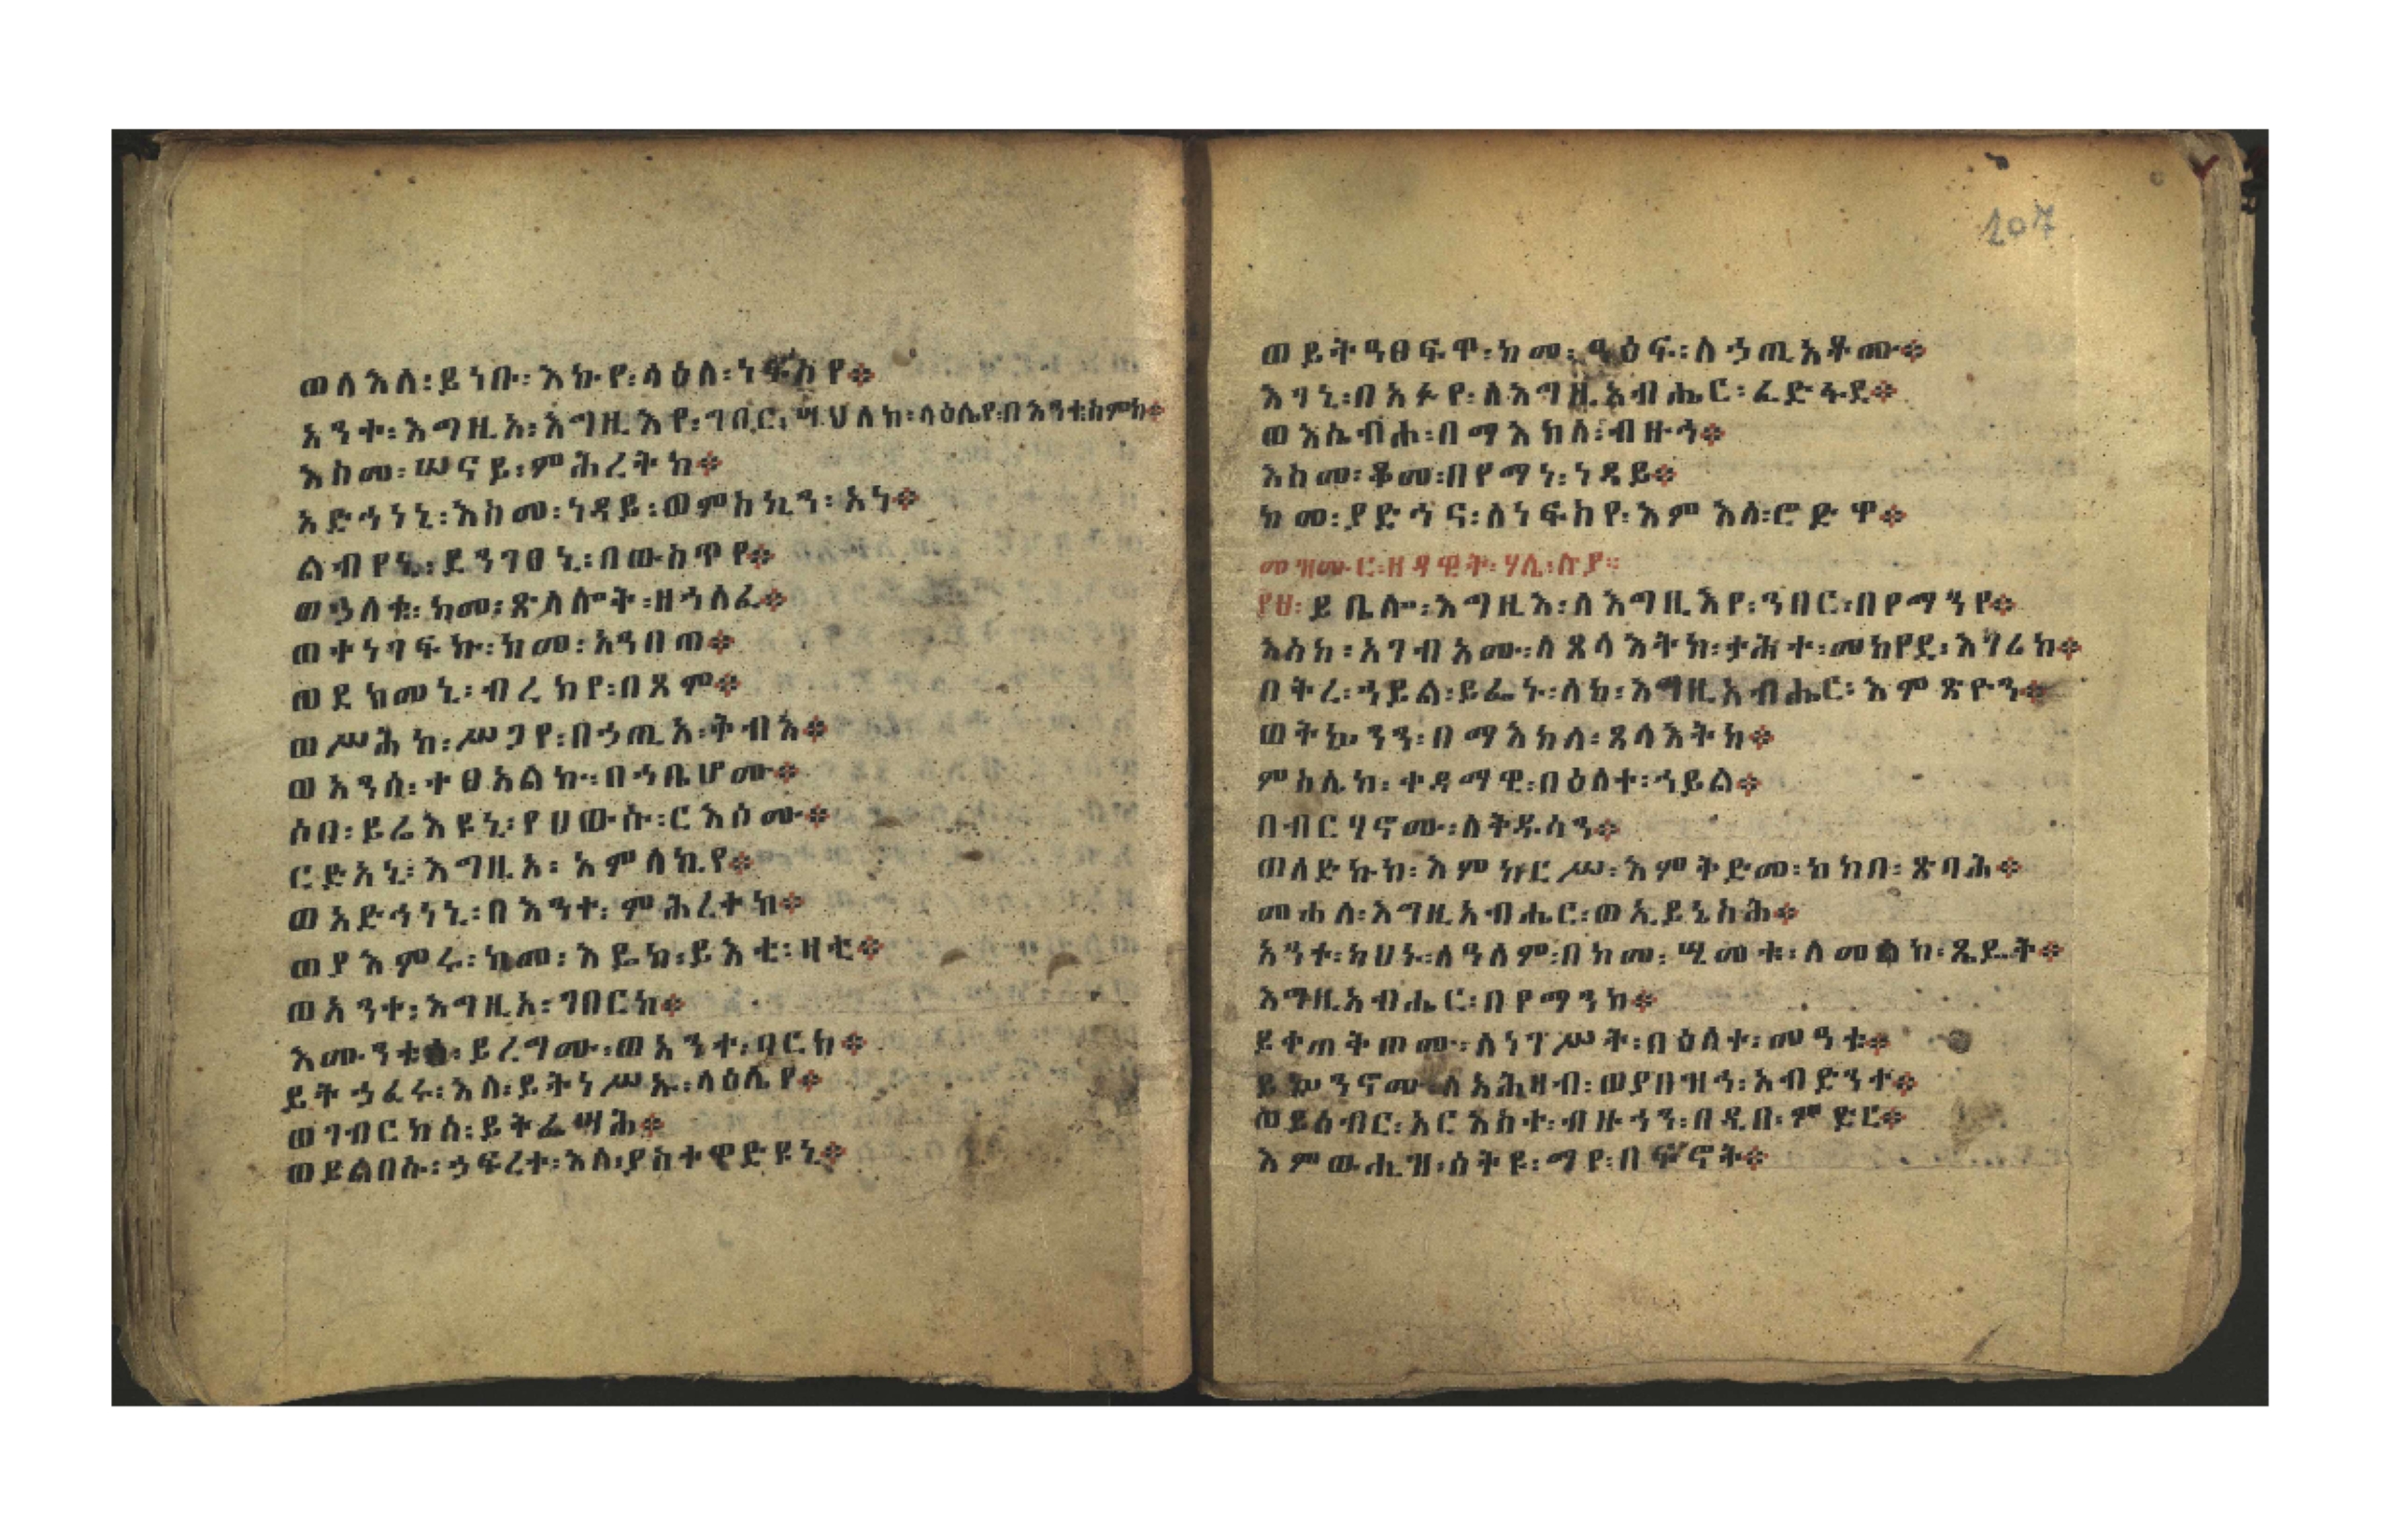 ወለእለ፡ይነቡ፡እኩየ፡ላዕለ፡ነፍስየ፨
አንተ፡እግዚአ፡እግዚእየ፡ገበር፡ሣህለከ፡ላዕሌየ፡በእንቲ፡ስምከ፨
እስመ፡ሠናይ፡ምሕረትከ፨
አድኅነኒ፡እስመ፡ነዳይ፡ወምስኪን፡አነ፨
ልብየኒ፡ደንገፀኒ፡በውስጥየ፨
ወኃለቁ፡ከመ፡ጽላሎት፡ዘኀለፈ፨
ወተነገፍኩ፡ከመ፡አንበጣ፨
ወደከመኒ፡ብረክየ፡በጾም፨
ወሥሕከ፡ሥጋየ፡በኃጢአ፡ቅብእ፨
ወአንሰ፡ተፀአልኩ፡በኀቤሆሙ፨
ሶበ፡ይሬእዩኒ፡የሀውሱ፡ርእሶሙ፨
ርድአኒ፡እግዚአ፡አምላኪየ፨
ወአድኅነኒ፡በእንተ፡ምሕረተከ፨
ወያእምሩ፡ከመ፡እዴከ፡ይእቲ፡ዛቲ፨
ወአንተ፡እግዚአ፡ገበርከ፨
እሙንቱ፡ይረግሙ፡ወአንተ፡ባርክ፨
ይትኃፈሩ፡እለ፡ይትነሥኡ፡ላዕሌየ፨
ወገብርከሰ፡ይትፌሣሕ፨
ወይልበሱ፡ኃፍረተ፡እለ፡ያስተዋድዩኒ፨
207
ወይትዓፀፍዋ፡ከመ፡ዓፅፍ፡ለኃጢአቶሙ፨
እገኒ፡በአፉየ፡ለእግዚአብሔር፡ፈድፋደ፨
ወእሴብሖ፡በማእከለ፡ብዙኅ፨
እስመ፡ቆመ፡በየማነ፡ነዳይ፨
ከመ፡ያድኅና፡ለነፍስየ፡እምእለ፡ሮድዋ፨
መዝሙር፡ዘዳዊት፡ሃሌ፡ሉያ።
የሀ፡ይቤሎ፡እግዚእ፡ለእግዚእየ፡ንበር፡በየማንየ፨
እስከ፡አገብአሙ፡ለጸላእትከ፡ታሕተ፡መከየደ፡እገሪከ፨
በትረ፡ኀይል፡ይፌኑ፡ለከ፡እግዚአብሔር፡እምጽዮን፨
ወትኴንን፡በማእከለ፡ጸላእትከ፨
ምስሌከ፡ቀዳማዊ፡በዕለተ፡ኀይል፨
በብርሃኖሙ፡ለቅዱሳን፨
ወለድኩከ፡እምከርሥ፡እምቅድመ፡ኮከበ፡ጽባሕ፨
መሐለ፡እግዚአብሔር፡ወኢይኔስሕ፨
አንተ፡ካህኑ፡ለዓለም፡በከመ፡ሢመቱ፡ለመልከ፡ጼዴቅ፨
እግዚአብሔር፡በየማንከ፨
ይቀጠቅጦሙ፡ለነገሥት፡በዕለተ፡መዓቱ፨
ይኴንኖሙ፡ለአሕዛብ፡ወያበዝኅ፡አብድንተ፨
ወይሰብር፡አርእስተ፡ብዙኀን፡በዲበ፡ምድር፨
እምውሒዝ፡ሰትዩ፡ማየ፡በፍኖት፨